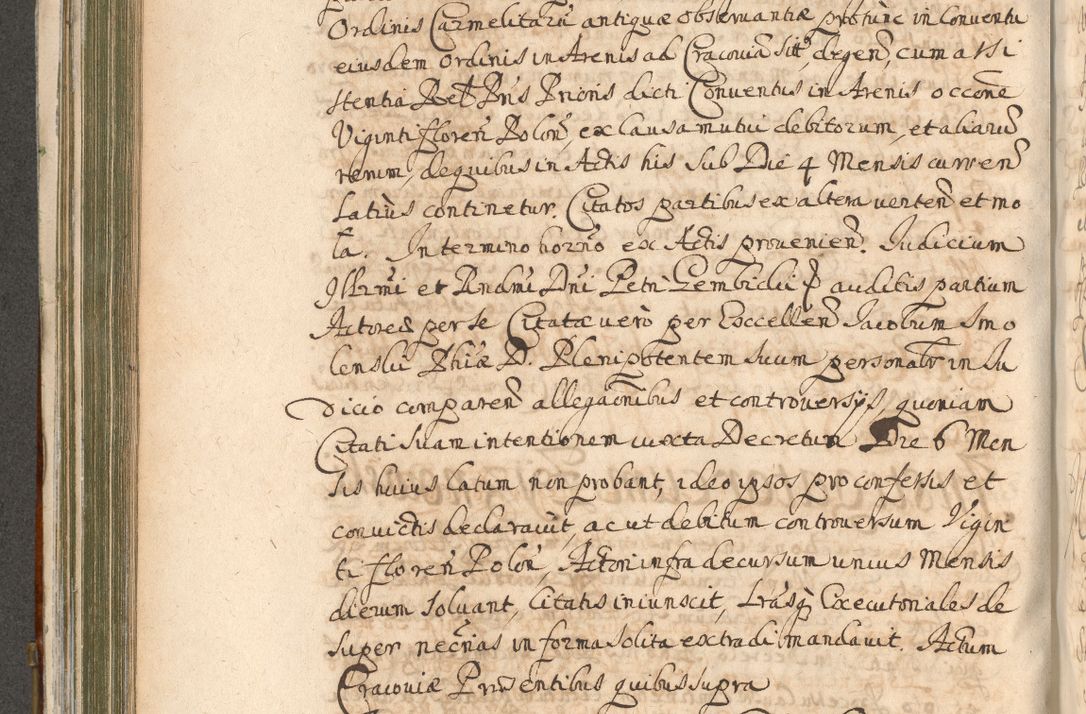 Ordinis Carmelitarū antiquæ obseruantiæ protunc in Conuentu
eiusdem Ordinis in Arenis ad Cracouiā sitt, degen, cum assi
stentia Rel Pris Prioris dicti Conuentus in Arenis occone
Viginti floren Polon, ex causa mutui debitorum, et aliarū
rerum, de quibus in Actis his sub Die 4 Mensis curren
Latius continetur. Citatos partibus ex altera uerten et mo
ta. In termino horno ex Actis prouenien. Iudicium
Illrmi et Rndmi Dni Petri Gembicki & auditis partium
Actoreis per se Citatæ uero per Excellen Iacobum Smo
lenski Phiæ D. Plenipotentem suum personalr in Iu
dicio comparen allegaonibus et controuersijs, quoniam
Citati suam intentionem iuxta Decretum Die 6 Men
sis huius latum non probant, ideo ipsos pro confessis et
conuictis declarauit, ac ut debitum controuersum Vigin
ti floren Polon, Actori infra decursum unius Mensis
dierum soluant, Citatis iniunscit, Lrasq Executoriales de
super necrias in forma solita extradi mandauit. Actum
Cracouiæ Præsentibus quibus supra